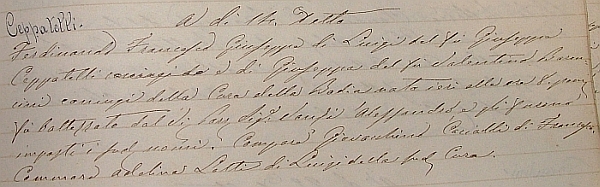 Ceppatelli.
A dì th. Detto
Ferdinando Francesco Giuseppe di Luigi del fù Giuseppe
Ceppatelli coniugi da e di Giuseppa del fù Valentino
coniugi della Cura della Badia nato ieri alle ore 8 pom
fù battezzato dal Sig. Alessandro e gli furono
imposti i sud. nomi. Compare Giovacchino di Francesco,
Commare Adelina Letti di Luigi della sud. Cura.